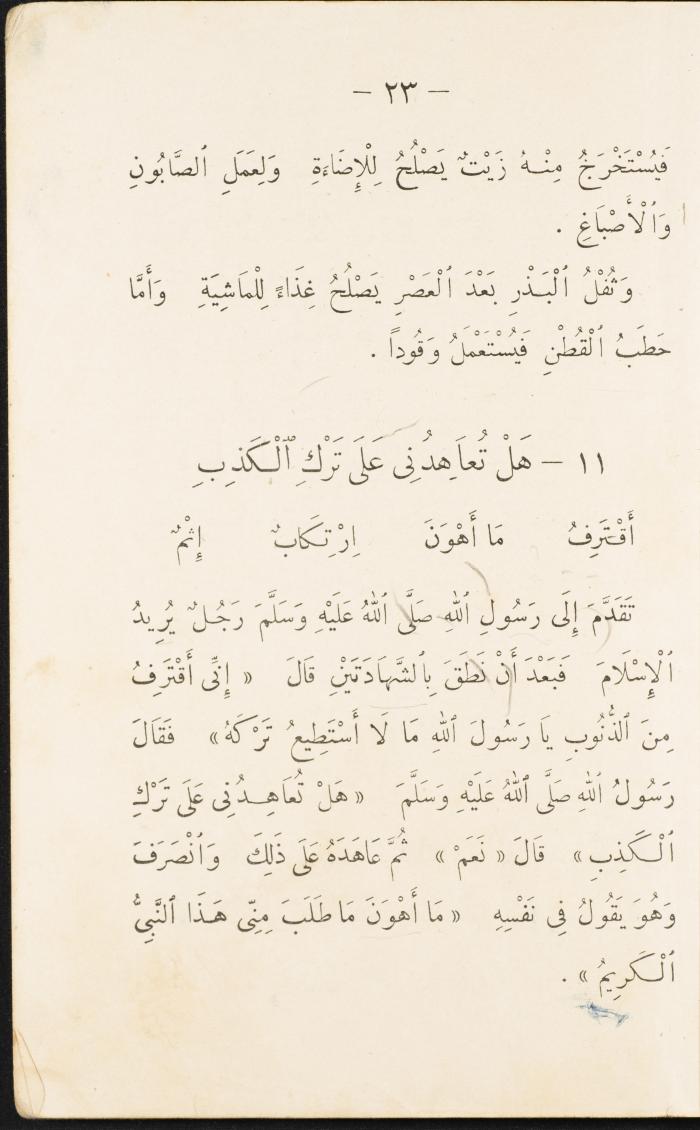 — ٢٣ —
فَيُسْتَخْرَجُ مِنْهُ زَيْتٌ يَصْلُحُ لِلْإِضَاءَةِ وَلِعَمَلِ ٱلصَّابُونِ
وَٱلْأَصْبَاغِ .
وَثُفْلُ ٱلْبَذْرِ بَعْدَ ٱلْعَصْرِ يَصْلُحُ غِذَاءً لِلْمَاشِيَةِ وَأَمَّا
حَطَبُ ٱلْقُطْنِ فَيُسْتَعْمَلُ وَقُوداً .
١١ — هَلْ تُعَاهِدُنِى عَلَى تَرْكِ ٱلْكَذِبِ
أَقْتَرِفُ مَا أَهْوَنَ اِرْتِكَابٌ إِثْمٌ
تَقَدَّمَ إِلَى رَسُولِ ٱللهِ صَلَّى ٱللهُ عَلَيْهِ وَسَلَّمَ رَجُلٌ يُرِيدُ
ٱلْإِسْلَامَ فَبَعْدَ أَنْ نَطَقَ بِٱلشَّهَادَتَيْنِ قَالَ « إِنِّى أَقْتَرِفُ
مِنَ ٱلذُّنُوبِ يَا رَسُولَ ٱللهِ مَا لَا أَسْتَطِيعُ تَرْكَهُ » فَقَالَ
رَسُولُ ٱللهِ صَلَّى ٱللهُ عَلَيْهِ وَسَلَّمَ « هَلْ تُعَاهِدُنِى عَلَى تَرْكِ
ٱلْكَذِبِ » قَالَ « نَعَمْ » ثُمَّ عَاهَدَهُ عَلَى ذَلِكَ وَٱنْصَرَفَ
وَهُوَ يَقُولُ فِى نَفْسِهِ « مَا أَهْوَنَ مَا طَلَبَ مِنِّى هَذَا ٱلنَّبِىُّ
ٱلْكَرِيمُ » .